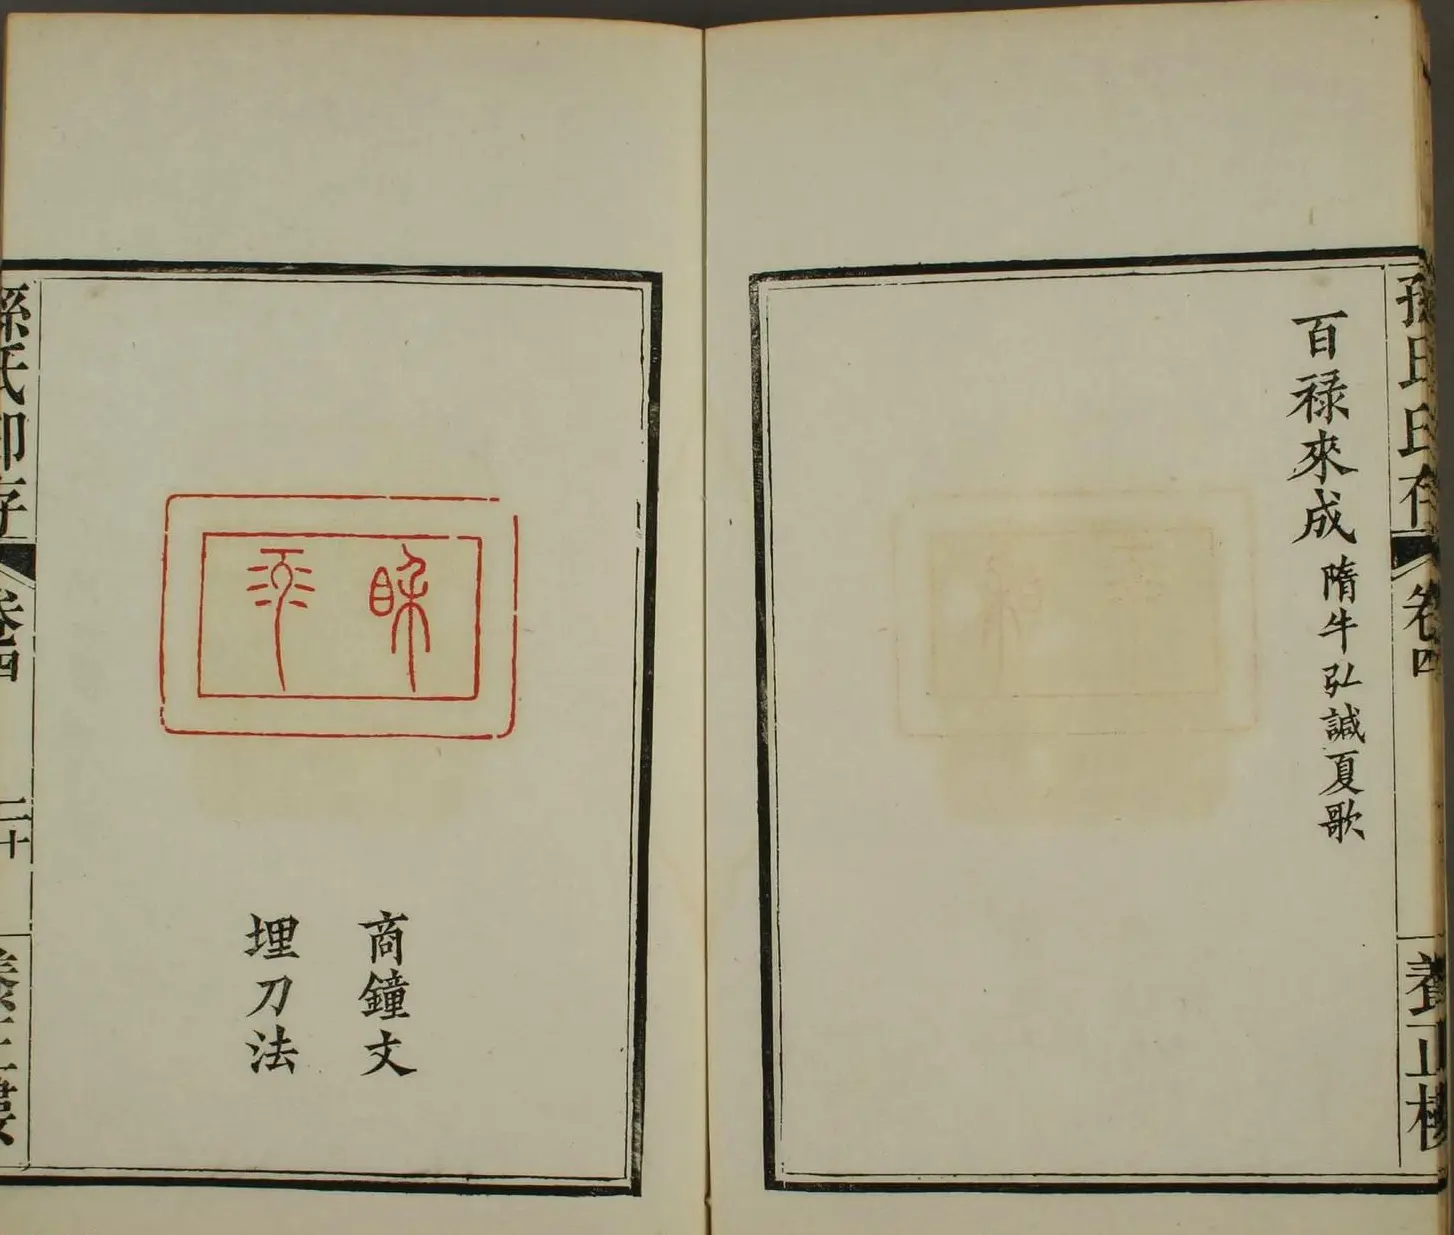 孫氏印存
卷四
養正樓
百祿來成
隋牛弘諴夏歌
商鐘文
埋刀法
孫氏印存
卷四
二十
養正樓